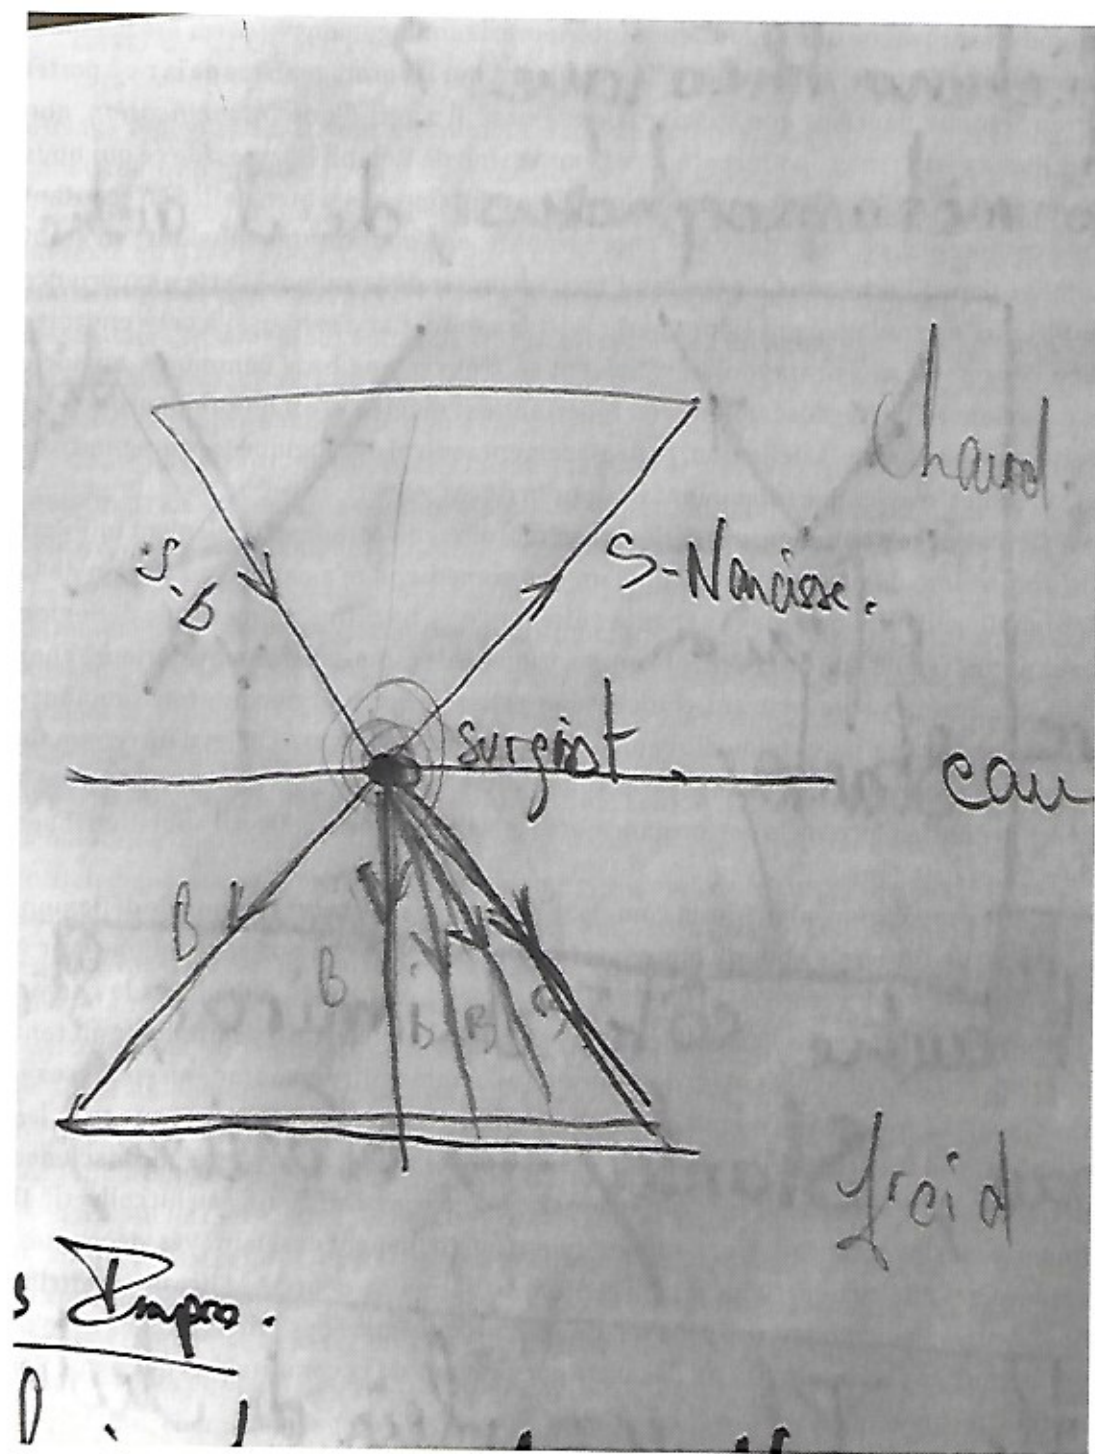 chaud.
S-B
S-Narcisse.
surgist
eau
B
B
B
B
froid
s Impro.